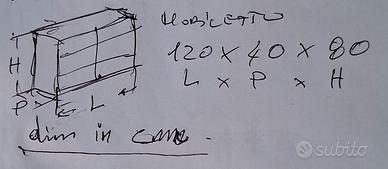 MOBILETTO
120 x 40 x 80
L x P x H
H
P
L
dim in cm.
subito